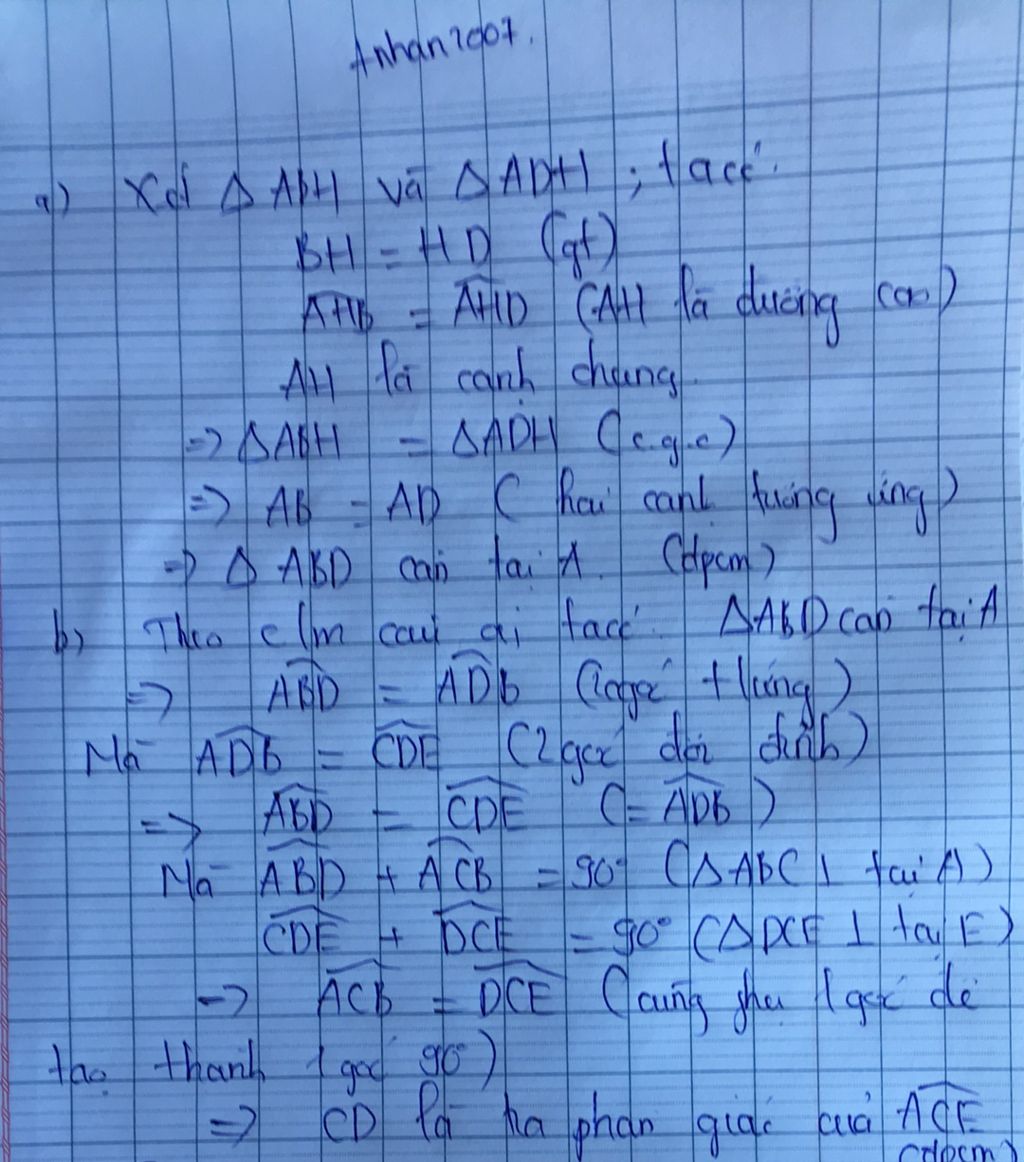 Anhan2007.
a) Xét Δ ABH và Δ ADH ; ta có:
BH = HD (gt)
AHB = AHD (AH là đường cao)
AH là cạnh chung.
=> ΔABH = ΔADH (c.g.c)
=> AB = AD ( hai cạnh tương ứng)
=> Δ ABD cân tại A. (đpcm)
b) Theo c/m câu a, ta có: ΔABD cân tại A
=> ABD = ADB (2 góc tứng)
Mà ADB = CDE (2 góc đối đỉnh)
=> ABD = CDE (= ADB)
Mà ABD + ACB = 90° (ΔABC ⊥ tại A)
CDE + DCE = 90° (ΔDCE ⊥ tại E)
=> ACB = DCE (cùng phụ 1 góc để
tạo thành 1 góc 90°)
=> CD là tia phân giác của ACE
(đpcm)